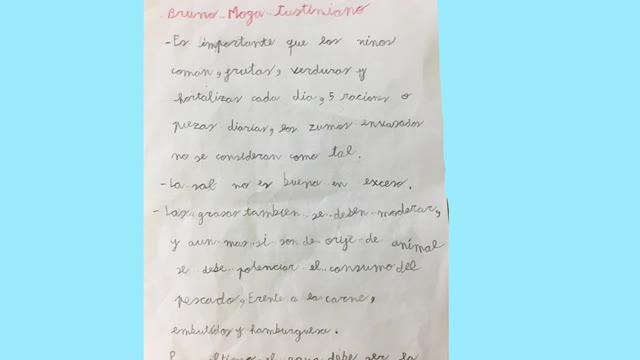 Bruno Moga Justiniano
- Es importante que los ninos
coman, frutas, verduras y
hortalizas cada dia, 5 raciones o
piezas diarias, los zumos envasados
no se consideran como tal.
- La sal no es buena en exceso.
- Las grasas tambien se deben moderar,
y aun mas si son de orije de animal
se debe potenciar el consumo del
pescado, Frente a la carne,
embutidos y hamburguesa.
el agua debe ser la